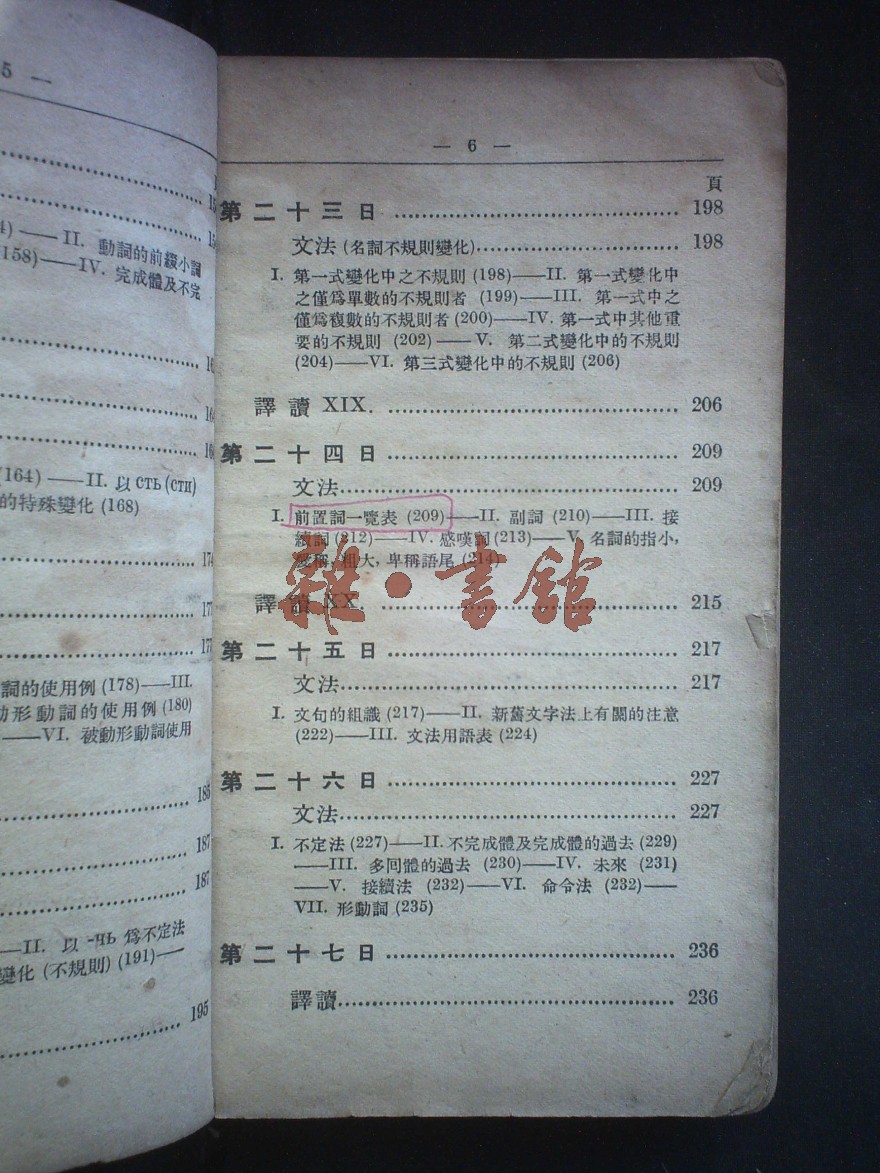 5 —
4) —— II. 動詞的前綴小詞
158)——IV. 完成體及不完
164
(164) —— II. 以 сть (сти)
的特殊變化 (168)
174
詞的使用例 (178)——III.
動形動詞的使用例 (180)
—VI. 被動形動詞使用
187
187
—II. 以 -чь 爲不定法
變化 (不規則) (191)—
195
— 6 —
頁
第二十三日 198
文法 (名詞不規則變化) 198
I. 第一式變化中之不規則 (198)——II. 第一式變化中
之僅爲單數的不規則者 (199)——III. 第一式中之
僅爲複數的不規則者 (200)——IV. 第一式中其他重
要的不規則 (202)——V. 第二式變化中的不規則
(204)——VI. 第三式變化中的不規則 (206)
譯讀 XIX. 206
第二十四日 209
文法 209
I. 前置詞一覽表 (209)——II. 副詞 (210)——III. 接
續詞 (212)——IV. 感嘆詞 (213)——V. 名詞的指小,
愛稱, 粗大, 卑稱語尾 (214)
譯讀 XX. 215
雜·書館
第二十五日 217
文法 217
I. 文句的組識 (217)——II. 新舊文字法上有關的注意
(222)——III. 文法用語表 (224)
第二十六日 227
文法 227
I. 不定法 (227)——II. 不完成體及完成體的過去 (229)
——III. 多回體的過去 (230)——IV. 未來 (231)
——V. 接續法 (232)——VI. 命令法 (232)——
VII. 形動詞 (235)
第二十七日 236
譯讀 236